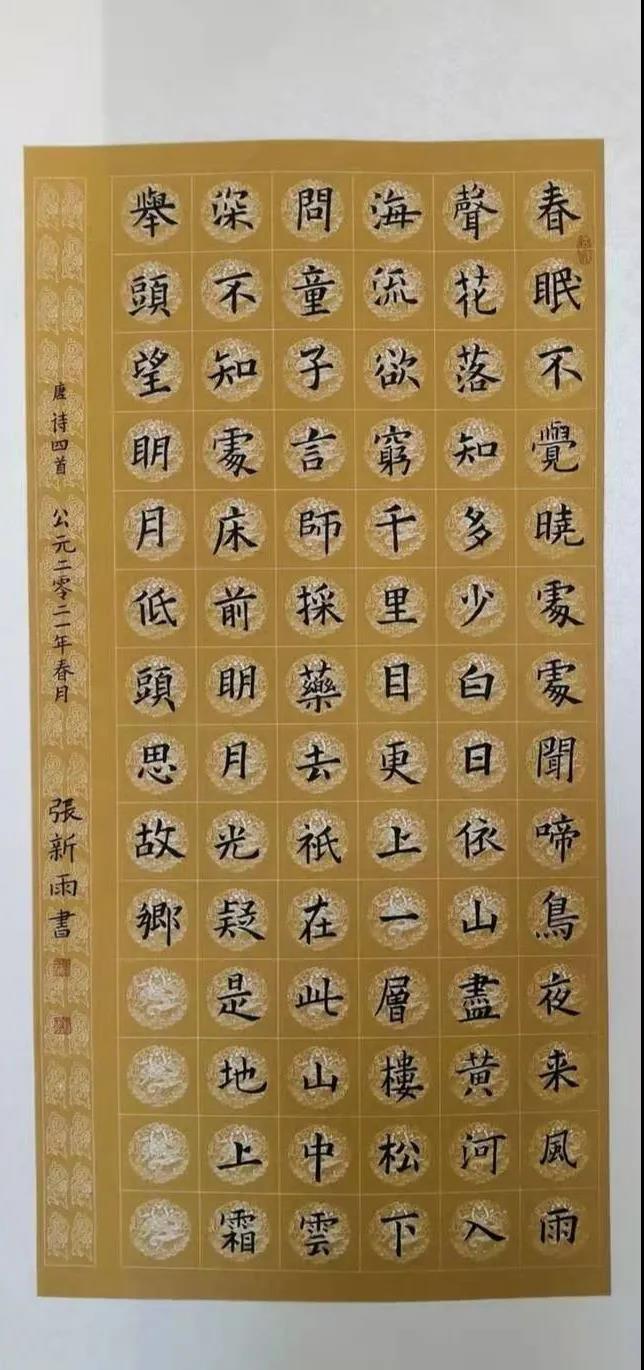 春眠不覺曉處處聞啼鳥夜来風雨
聲花落知多少白日依山盡黃河入
海流欲窮千里目更上一層樓松下
問童子言師採藥去祇在此山中雲
深不知處床前明月光疑是地上霜
舉頭望明月低頭思故鄉
唐诗四首 公元二零二一年春月 張新雨書